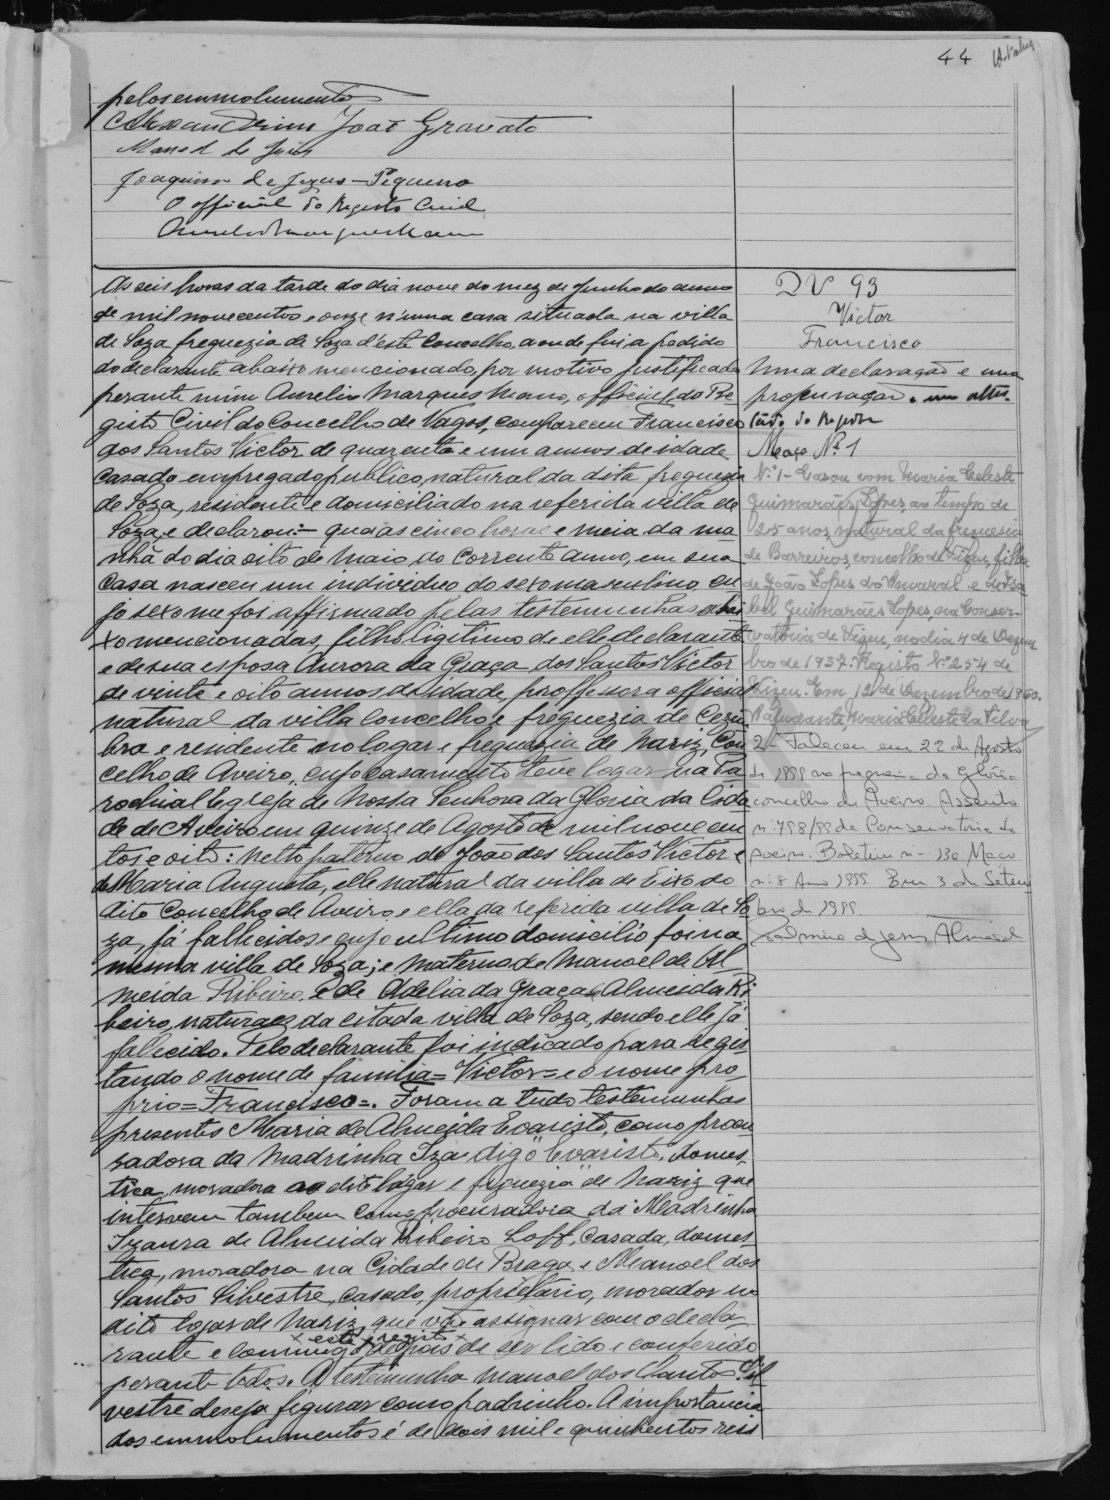 44
pelos emmolumentos
Alexandrino João Gravato
Manoel de Jesus
Joaquim de Jezus Piqueno
O official do Registo Civil
As seis horas da tarde do dia nove do mez de Junho do anno
de mil nove centos e onze n'uma casa situada na villa
de Soza freguezia de Soza d'este Concelho, aonde fui a pedido
do declarante abaixo mencionado, por motivo justificado
perante mim Aurelio Marques Mano, official do Re-
gisto Civil do Concelho de Vagos, compareceu Francisco
dos Santos Victor de quarenta e um annos de idade
casado empregado publico, natural da dita freguezia
de Soza, residente e domiciliado na referida villa de
Soza, e declarou:- que as cinco horas e meia da ma
nhã do dia oito de Maio do corrente anno, em sua
casa nasceu um individuo do sexo masculino, cu
jo sexo me foi affirmado pelas testemunhas abai
xo mencionadas, filho ligitimo de elle declarante
e de sua esposa Aurora da Graça dos Santos Victor
de vinte e oito annos de idade, proffessora official
natural da villa Concelho e freguezia de Cezim
bra e residente no logar e freguezia de Nariz, Con
celho de Aveiro, cujo casamento teve logar na Pa
rochial Egreja de Nossa Senhora da Gloria da Cida
de de Aveiro em quinze de Agosto de mil nove cen
tos e oito: Netto paterno de João dos Santos Victor e
de Maria Augusta, elle natural da villa de Eixo do
dito Concelho de Aveiro, e ella da referida villa de So
za, já fallecidos e cujo ultimo domicilio foi na
mesma villa de Soza; e materno de Manoel de Al
meida Ribeiro, e de Adelia da Graça e Almeida Ri
beiro, naturaes da citada villa de Soza, sendo elle já
fallecido. Pelo declarante foi indicado para o regis
tando o nome de familia = Victor = e o nome pro
prio = Francisco =. Foram a tudo testemunhas
presentes Maria de Almeida Evaristo, como procu
radora da Madrinha Iza digo Evaristo, domes
tica, moradora no dito logar e freguezia de Nariz que
intervem tambem como procuradora da Madrinha
Izaura de Almeida Ribeiro Loff, casada, domes
tica, moradora na Cidade de Braga e Manoel dos
Santos Silvestre, casado, proprietario, morador no
dito logar de Nariz, que vão assignar com o decla
× este registo ×
rante e commigo depois de ser lido e conferido
perante todos. A testemunha Manoel dos Santos Sil
vestre deseja figurar como padrinho. A importancia
dos emmolumentos é de dois mil e quinhentos reis
DV 93
Victor
Francisco
Uma declaração e uma
procuração e um attes-
tado do Regedor
Maço Nº 1
Nº 1 - Casou com Maria Celeste
Guimarães Lopes, ao tempo de
25 anos, natural da freguesia
de Barreiros, concelho de Vizeu, filha
de João Lopes do Amaral e de Isa
bel Guimarães Lopes, na Conser-
vatória de Vizeu, no dia 4 de Dezem
bro de 1937. Registo Nº 254 de
Vizeu. Em, 12 de Dezembro de 1960.
A ajudante, Maria Celeste da Silva
2 - Faleceu em 22 de Agosto
de 1999 na freguesia da Glória
concelho de Aveiro. Assento
nº 798/99 da Conservatória de
Aveiro. Boletim nº 130 Maço
nº 8 Ano 1999. Em 3 de Setem
bro de 1999.